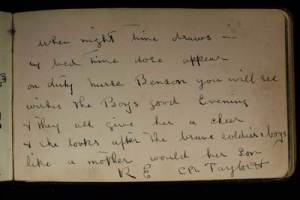 When night time draws in
& bed time dose appear
on duty nurse Benson you will see
wishes The Boys good Evening
& They all give her a cheer
& she looks after the brave soldiers boys
like a mother would her Son
R E Cpl Taylor